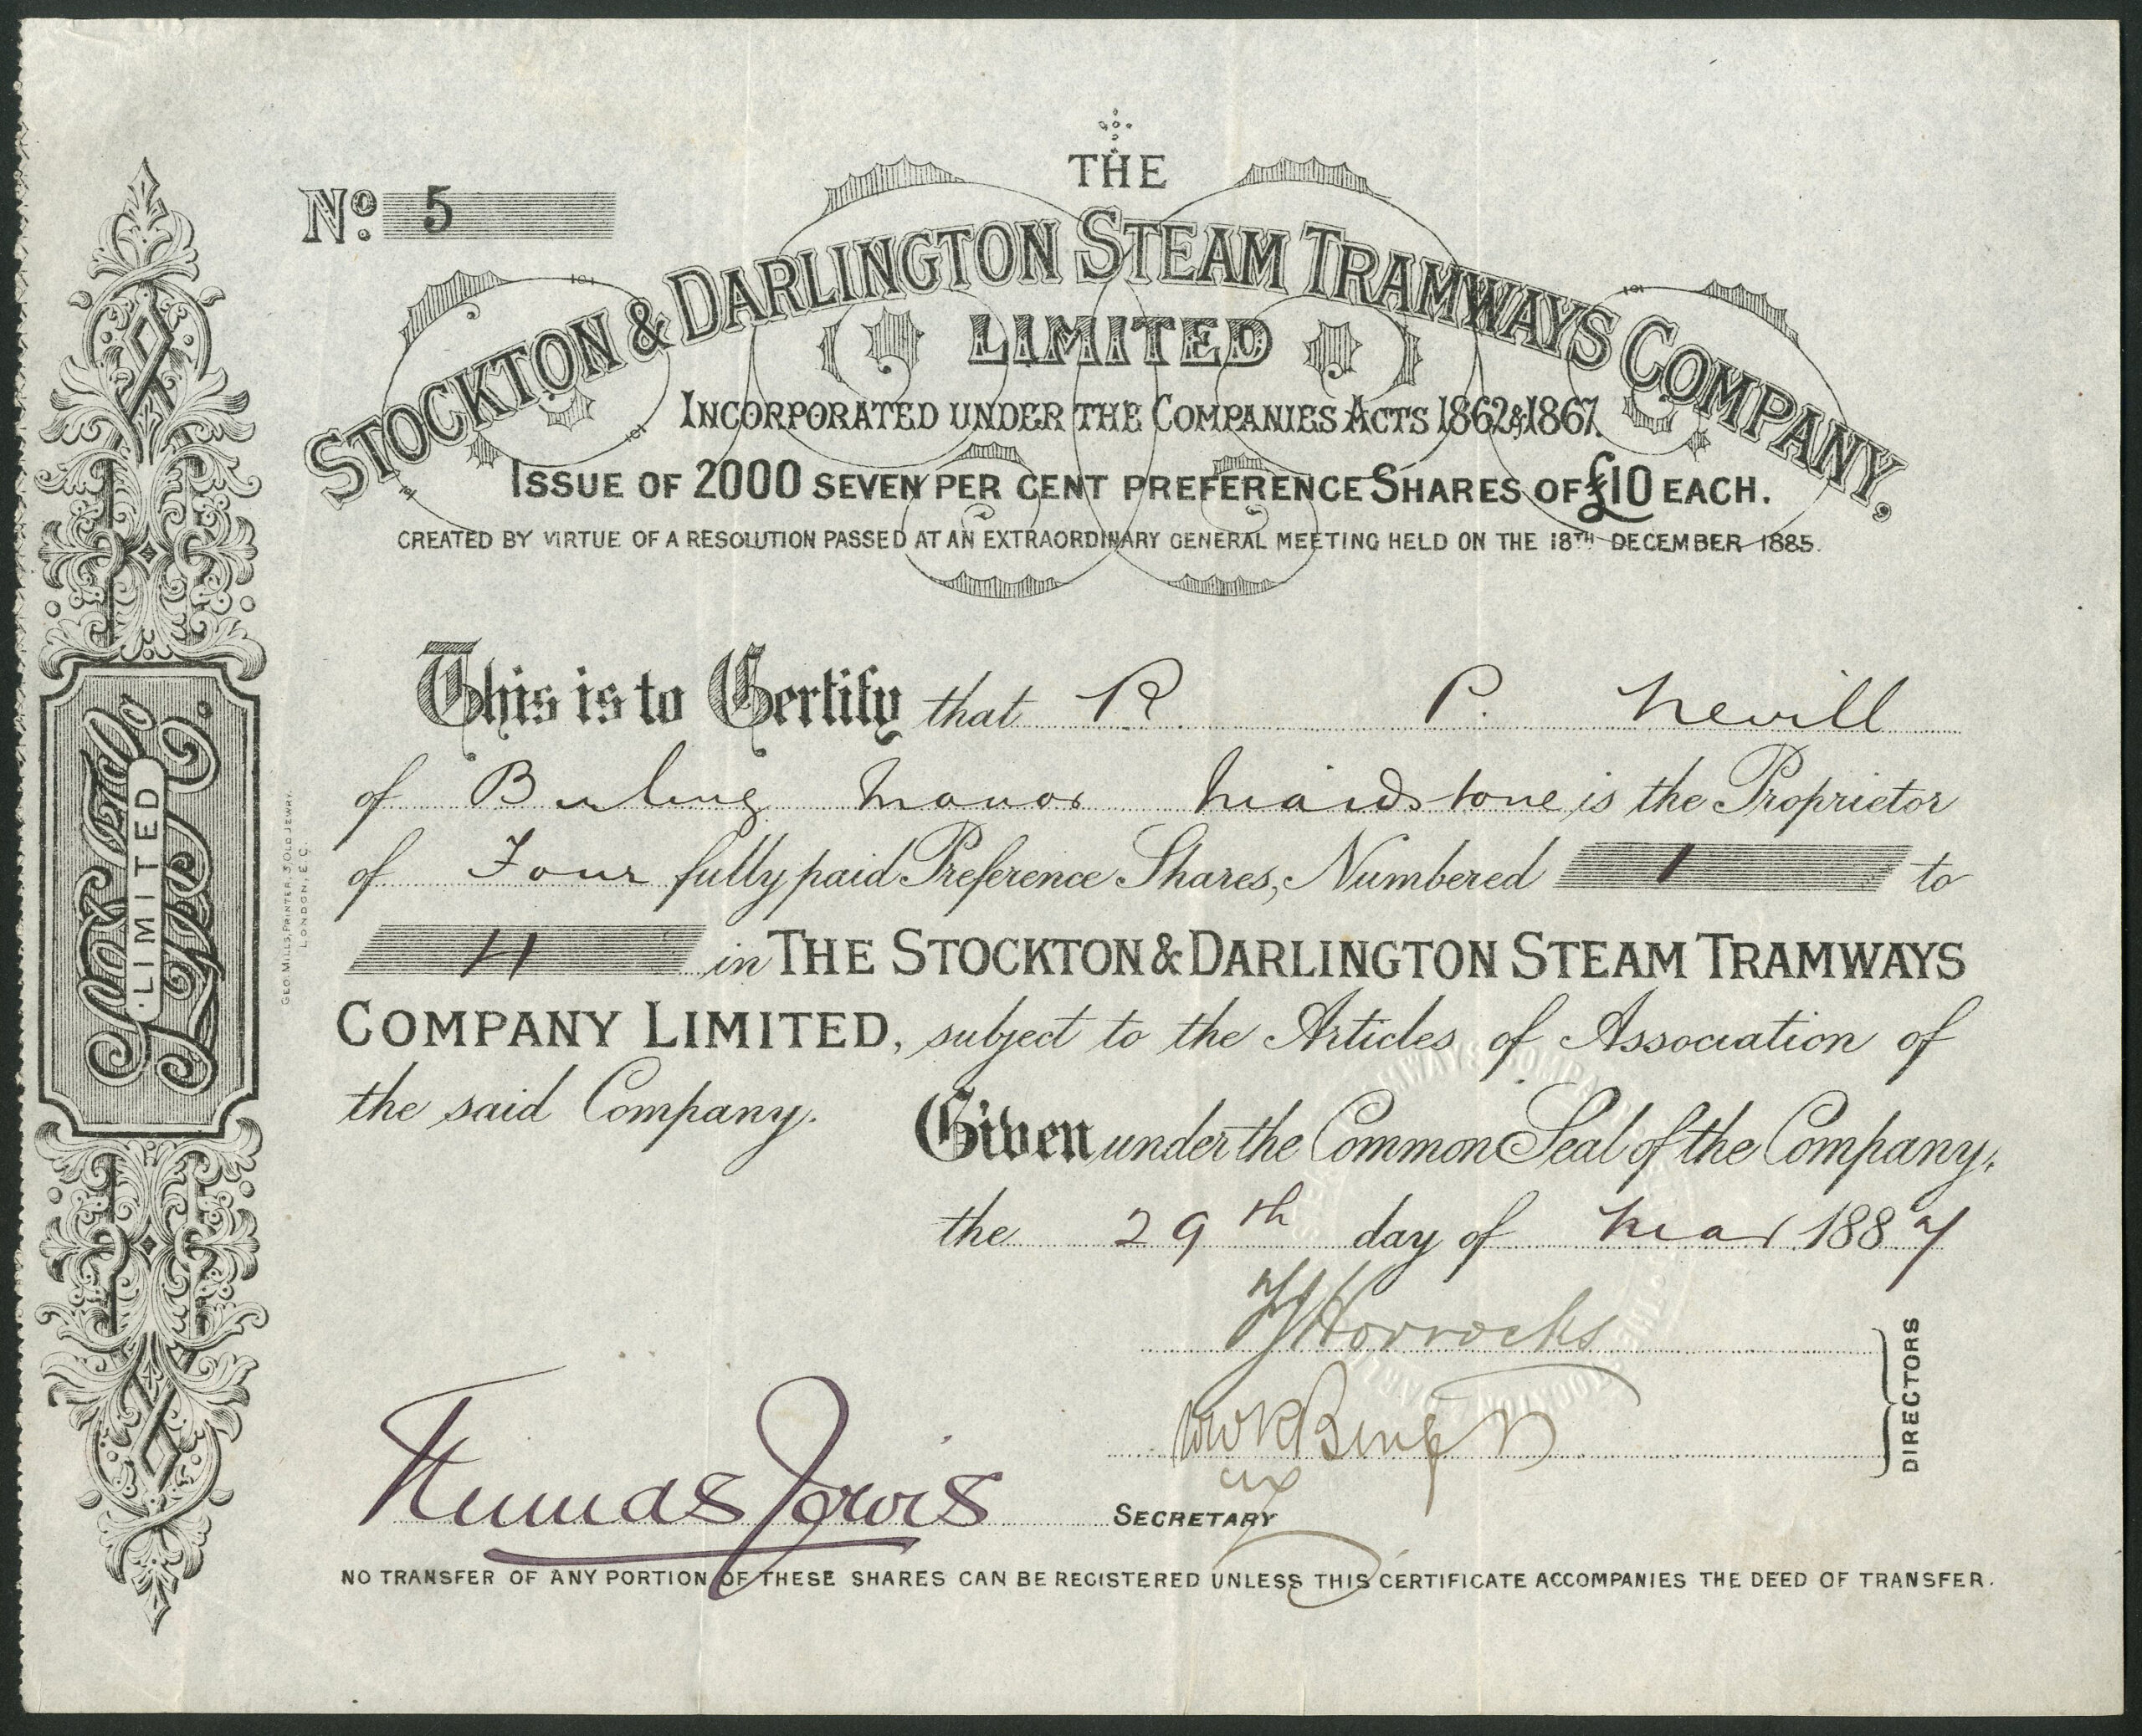 No. 5
THE
STOCKTON & DARLINGTON STEAM TRAMWAYS COMPANY,
LIMITED
INCORPORATED UNDER THE COMPANIES ACTS 1862 & 1867.
ISSUE OF 2000 SEVEN PER CENT PREFERENCE SHARES OF £10 EACH.
CREATED BY VIRTUE OF A RESOLUTION PASSED AT AN EXTRAORDINARY GENERAL MEETING HELD ON THE 18TH DECEMBER 1885.
This is to Certify that R. P. Nevill
of Birling Manor Maidstone is the Proprietor
of Four fully paid Preference Shares, Numbered 1 to
4 in THE STOCKTON & DARLINGTON STEAM TRAMWAYS
COMPANY LIMITED, subject to the Articles of Association of
the said Company.
Given under the Common Seal of the Company,
the 29th day of Mar 1887
Horrocks
DIRECTORS
Thomas Jervis SECRETARY
NO TRANSFER OF ANY PORTION OF THESE SHARES CAN BE REGISTERED UNLESS THIS CERTIFICATE ACCOMPANIES THE DEED OF TRANSFER.
LIMITED
GEO. MILLS, PRINTER, 3, OLD JEWRY,
LONDON, E.C.